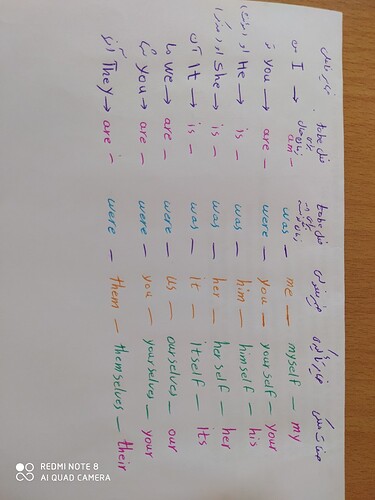 to be to be
من I → am — was — me — myself — my
تو you → are — were — you — yourself — your
او He → is — was — him — himself — his
او She → is — was — her — herself — her
آن It → is — was — it — itself — Its
ما we → are — were — us — ourselves — our
شما you → are — were — you — yourselves — your
They → are — were — them — themselves — their
REDMI NOTE 8
AI QUAD CAMERA